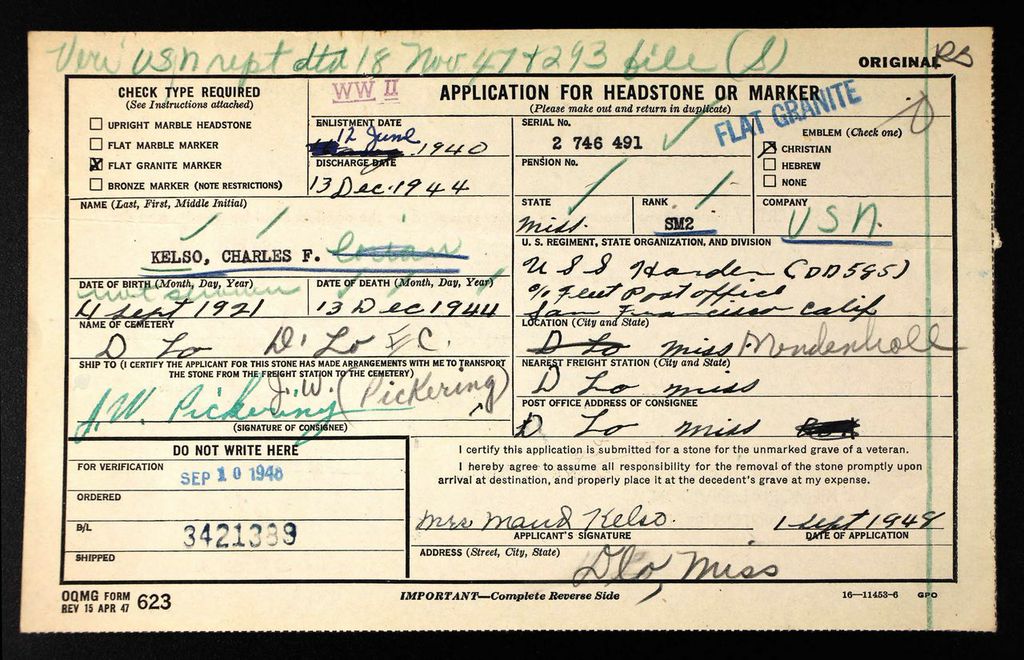 Veri USN rept dtd 18 Nov 47 + 293 file (S)
ORIGINAL RS
CHECK TYPE REQUIRED
(See Instructions attached)
UPRIGHT MARBLE HEADSTONE
FLAT MARBLE MARKER
FLAT GRANITE MARKER
BRONZE MARKER (NOTE RESTRICTIONS)
WW II
APPLICATION FOR HEADSTONE OR MARKER
(Please make out and return in duplicate)
FLAT GRANITE
ENLISTMENT DATE
12 June 1940
DISCHARGE DATE
13 Dec. 1944
SERIAL No.
2 746 491
PENSION No.
EMBLEM (Check one)
CHRISTIAN
HEBREW
NONE
STATE
Miss.
RANK
SM2
COMPANY
USN.
NAME (Last, First, Middle Initial)
KELSO, CHARLES F.
U. S. REGIMENT, STATE ORGANIZATION, AND DIVISION
U S S Harder (DD595)
c/o Fleet Post office
San Francisco Calif
DATE OF BIRTH (Month, Day, Year)
not shown
4 Sept 1921
DATE OF DEATH (Month, Day, Year)
13 Dec 1944
NAME OF CEMETERY
D Lo D'Lo EC.
LOCATION (City and State)
D Lo Miss. Mendenhall
SHIP TO (I CERTIFY THE APPLICANT FOR THIS STONE HAS MADE ARRANGEMENTS WITH ME TO TRANSPORT
THE STONE FROM THE FREIGHT STATION TO THE CEMETERY)
J.W. (Pickering)
J.W. Pickering
(SIGNATURE OF CONSIGNEE)
NEAREST FREIGHT STATION (City and State)
D Lo Miss
POST OFFICE ADDRESS OF CONSIGNEE
D Lo Miss
DO NOT WRITE HERE
FOR VERIFICATION
SEP 10 1948
ORDERED
B/L
3421389
SHIPPED
I certify this application is submitted for a stone for the unmarked grave of a veteran.
I hereby agree to assume all responsibility for the removal of the stone promptly upon
arrival at destination, and properly place it at the decedent's grave at my expense.
Mrs Maud Kelso.
APPLICANT'S SIGNATURE
1 Sept 1948
DATE OF APPLICATION
ADDRESS (Street, City, State)
Dlo, Miss
OQMG FORM
REV 15 APR 47 623
IMPORTANT—Complete Reverse Side
16—11453-6 GPO